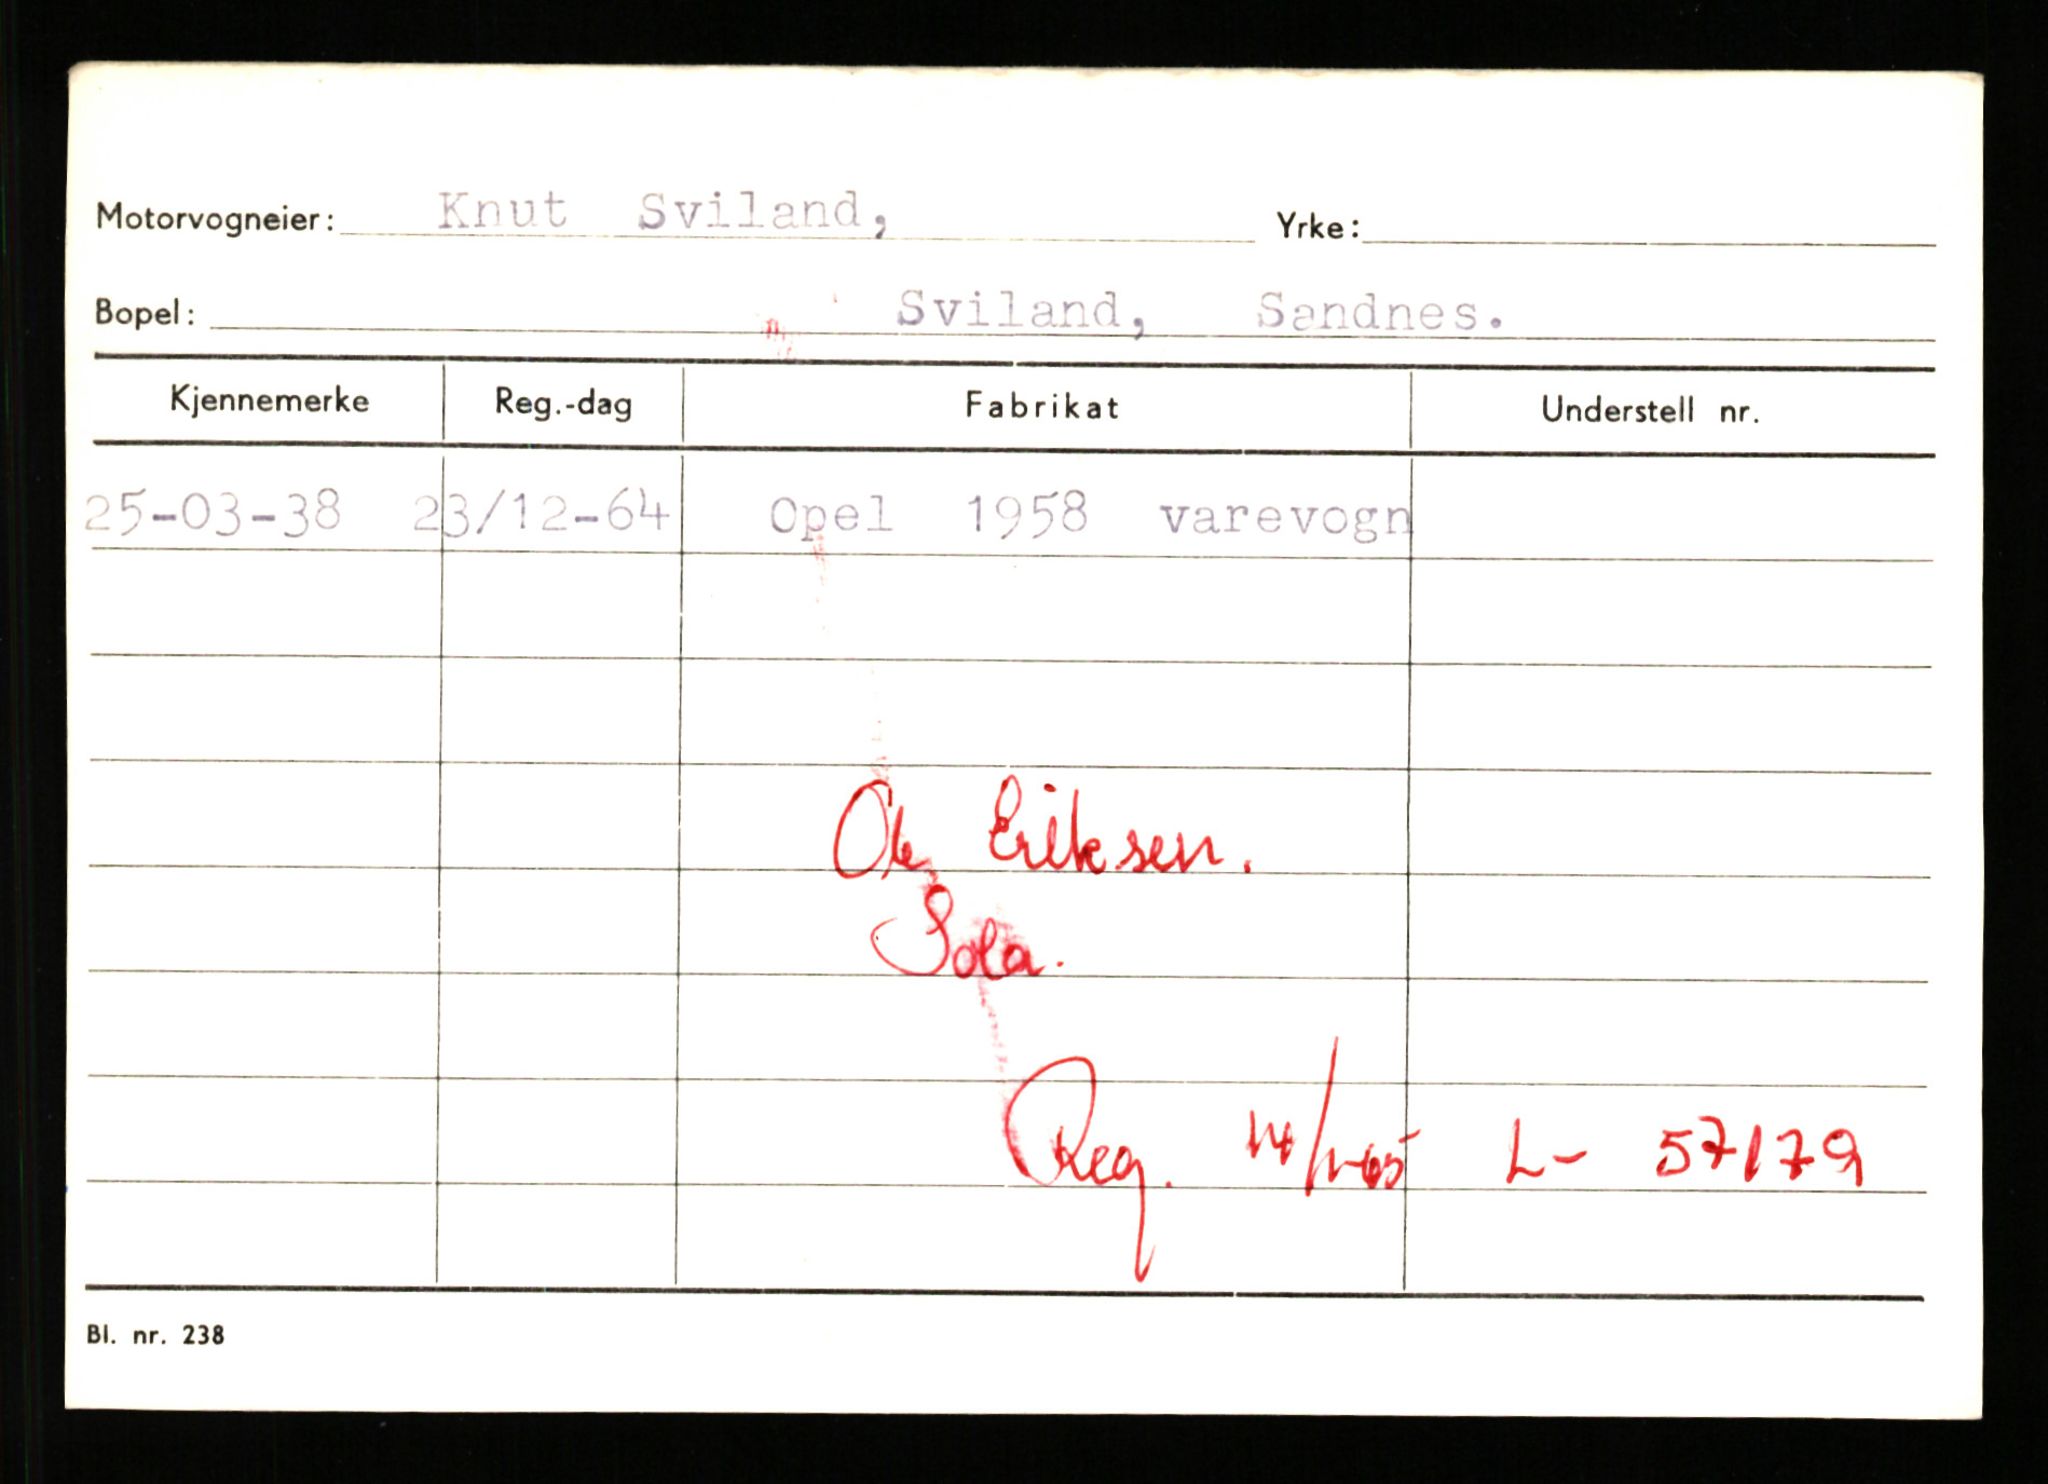 Motorvogneier: Knut Sviland, Yrke:
Bopel: Sviland, Sandnes.
Kjennemerke Reg.-dag Fabrikat Understell nr.
25-03-38 23/12-64 Opel 1958 varevogn
Ole Eriksen.
Sola.
Reg. 14/1-65 L- 57179
Bl. nr. 238